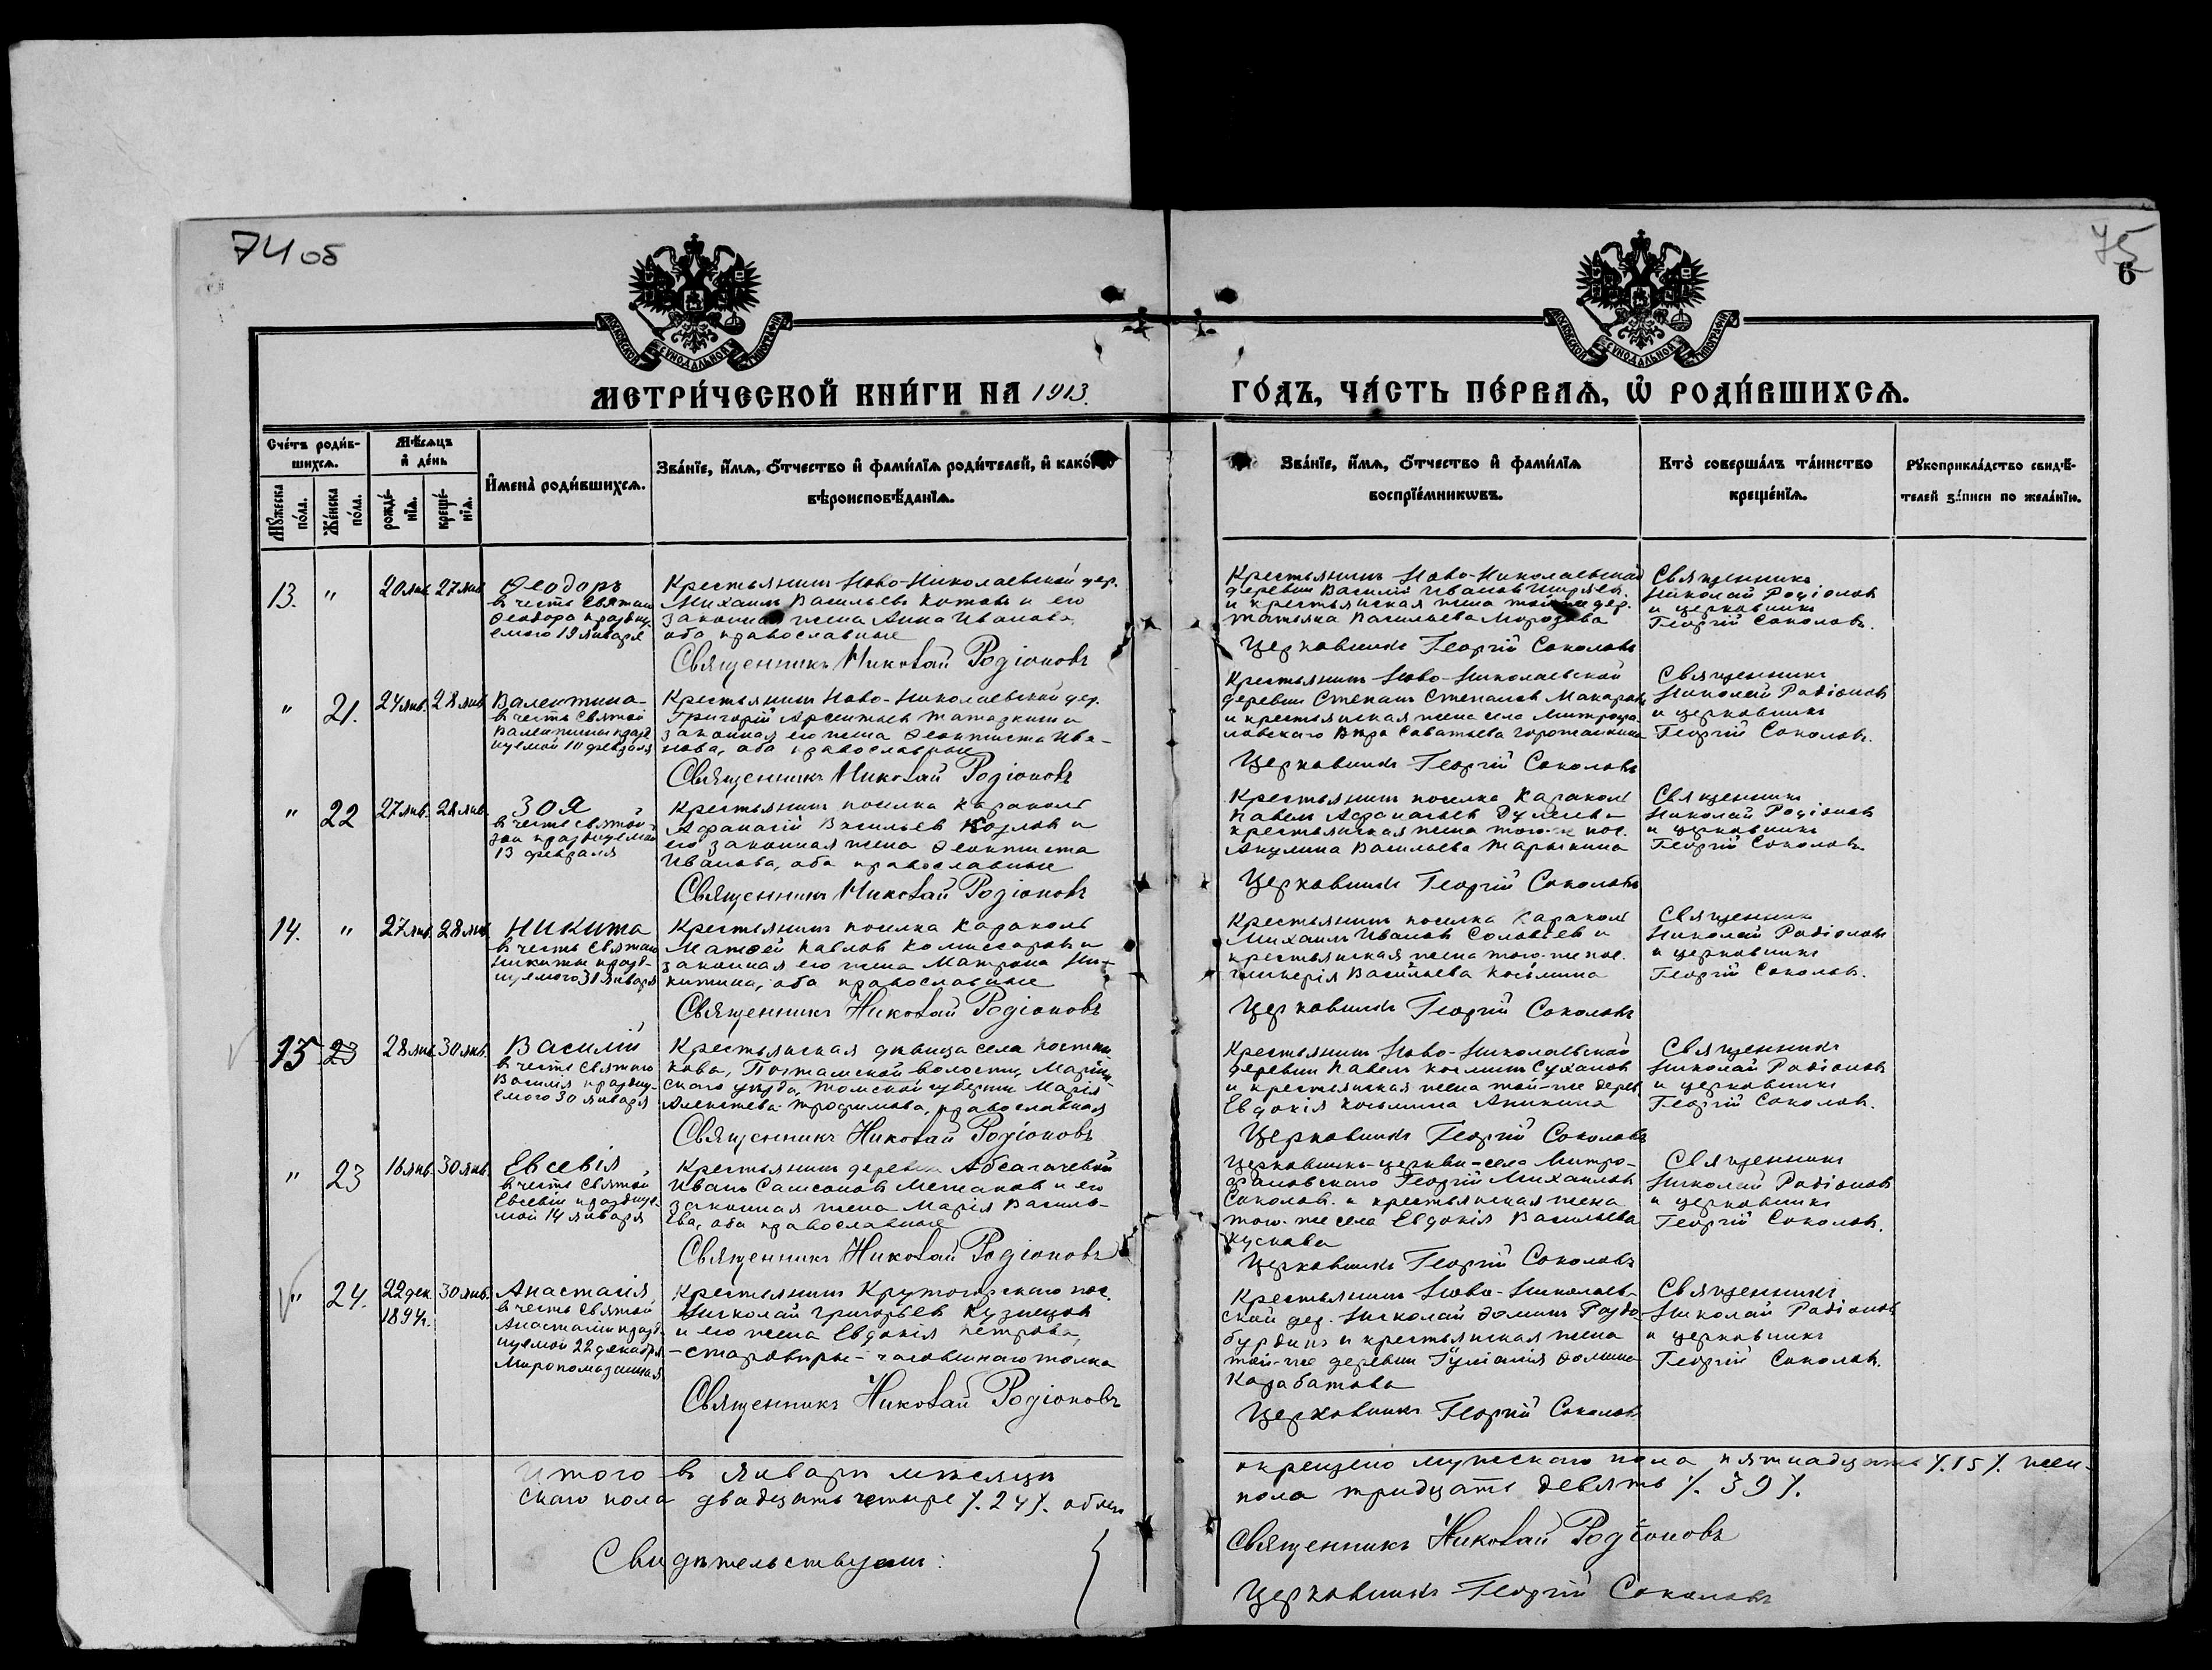 74 об
75
6
МОСКОВСКОЙ СѴНОДАЛЬНОЙ ТИПОГРАФІИ
МОСКОВСКОЙ СѴНОДАЛЬНОЙ ТИПОГРАФІИ
МЕТРИ́ЧЕСКОЙ КНИ́ГИ НА 1913.
ГО́ДЪ, ЧА́СТЬ ПЕ́РВАѦ, Ѿ РОДИ́ВШИХСѦ.
Сче́тъ роди́в-
шихсѧ.
Мꙋ́жеска по́ла.
Же́нска по́ла.
Мѣ́сѧцъ
и҆ де́нь
рожде́-
нїѧ.
креще́-
нїѧ.
И҆мена̀ роди́вшихсѧ.
Зва́нїе, и҆́мѧ, ѻ҆́тчество и҆ фами́лїѧ роди́телей, и҆ како́гѡ
вѣроисповѣ́данїѧ.
Зва́нїе, и҆́мѧ, ѻ҆́тчество и҆ фами́лїѧ
воспрїе́мникѡвъ.
Кто̀ соверша́лъ та́инство
креще́нїѧ.
Рꙋкоприкла́дство свидѣ́-
телей за́писи по жела́нїю.
13.
"
20 янв. 27 янв.
Ѳеодоръ
въ честь Святаго
Ѳеодора праздну-
емого 19 января
Крестьянинъ Ново-Николаевской дер.
Михаилъ Васильевъ Котовъ и его
законная жена Анна Иванова,
оба православные
Священникъ Николай Родіоновъ
Крестьянинъ Ново-Николаевской
деревни Василій Ивановъ Ширяев.
и крестьянская жена той-же дер.
Татьяна Васильева Морозова
Церковникъ Георгій Соколовъ
Священникъ
Николай Родіоновъ
и церковникъ
Георгій Соколовъ.
"
21.
24 янв. 28 янв.
Валентина
въ честь Святой
Валентины празд-
нуемой 10 февраля
Крестьянинъ Ново-Николаевской дер.
Григорій Арсентьевъ Татаркин и
законная его жена Ѳеоктиста Ива-
нова, оба православные
Священникъ Николай Родіоновъ
Крестьянинъ Ново-Николаевской
деревни Степанъ Степановъ Макаровъ
и крестьянская жена села Митрофа-
новскаго Вѣра Саватьева Горожанкина
Церковникъ Георгій Соколовъ
Священникъ
Николай Родіоновъ
и церковникъ
Георгій Соколовъ.
"
22
27 янв. 28 янв.
Зоя
въ честь Святой
Зои празднуемой
13 февраля
Крестьянинъ поселка Караколь
Афанасій Васильевъ Козловъ и
его законная жена Ѳеоктиста
Иванова, оба православные
Священникъ Николай Родіоновъ
Крестьянинъ поселка Караколь
Павелъ Афанасьевъ и
крестьянская жена того-же пос.
Акулина Васильева Тарыкина
Церковникъ Георгій Соколовъ
Священникъ
Николай Родіоновъ
и церковникъ
Георгій Соколовъ.
14.
"
27 янв. 28 янв.
Никита
въ честь Святаго
Никиты празд-
нуемого 31 января
Крестьянинъ поселка Караколь
Матѳей Павловъ Комиссаровъ и
законная его жена Матрона Ни-
китина, оба православные
Священникъ Николай Родіоновъ
Крестьянинъ поселка Караколь
Михаилъ Ивановъ Соловьевъ и
крестьянская жена того-же пос.
Гликерія Васильева Косьмина
Церковникъ Георгій Соколовъ
Священникъ
Николай Родіоновъ
и церковникъ
Георгій Соколовъ.
15
23
28 янв. 30 янв.
Василій
въ честь Святого
Василія праздну-
емого 30 января
Крестьянская дѣвица села Постни-
кова, Почтамской волости, Маріин-
скаго уѣзда, Томской губерніи Марія
Алексѣева Трофимова, православная
Священникъ Николай Родіоновъ
Крестьянинъ Ново-Николаевской
деревни Павелъ Косьминъ Сухановъ
и крестьянская жена той-же дерев.
Евдокія Косьмина Аникина
Церковникъ Георгій Соколовъ
Священникъ
Николай Родіоновъ
и церковникъ
Георгій Соколовъ.
"
23
16 янв. 30 янв.
Евсевія
въ честь Святой
Евсевіи празднуе-
мой 14 января
Крестьянинъ деревни Абсагачевой
Иванъ Самсоновъ Межаковъ и его
законная жена Марія Василь-
ева, оба православные
Священникъ Николай Родіоновъ
Церковникъ-церкви-села Митро-
фановскаго Георгій Михаиловъ
Соколовъ и крестьянская жена
того-же села Евдокія Васильева
Кускова
Церковникъ Георгій Соколовъ
Священникъ
Николай Родіоновъ
и церковникъ
Георгій Соколовъ.
"
24.
22 дек. 30 янв.
1894г.
Анастасія
въ честь Святой
Анастасіи празд-
нуемой 22 декабря
Миропомазанная
Крестьянинъ Крутогорскаго пос.
Николай Григорьевъ Кузнецов
и его жена Евдокія Петрова,
-старовѣры-часовеннаго толка
Священникъ Николай Родіоновъ
Крестьянинъ Ново-Николаев-
ской дер. Николай Ѳоминъ Раздо-
бурдинъ и крестьянская жена
той-же деревни Іуліанія Ѳомина
Карабатова
Церковникъ Георгій Соколовъ
Священникъ
Николай Родіоновъ
и церковникъ
Георгій Соколовъ.
Итого въ январѣ мѣсяцѣ
окрещено мужскаго пола пятнадцать /.15/. жен-
скаго пола двадцать четыре /.24/. обоего
пола тридцать девять /.39/.
Свидѣтельствуемъ:
Священникъ Николай Родіоновъ
Церковникъ Георгій Соколовъ